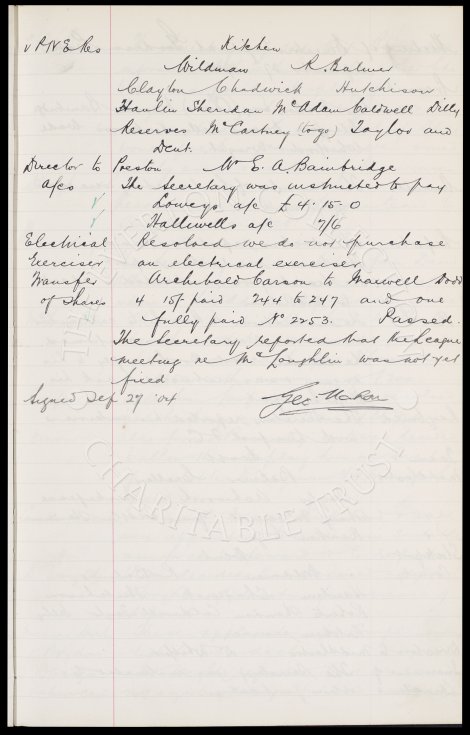 v P.N.E Res Kitchen
Wildman R. Balmer
Clayton Chadwick Hutchison
Hamlin Sheridan McAdam Caldwell Dilly
Reserves McCartney (to go) Taylor and
Dent.
Director to Preston Mr E. A. Bainbridge
A/cs The Secretary was instructed to pay
Loweys a/c £4.15.0
Halliwells a/c 7/6
Electrical Resolved we do not purchase
Exerciser an electrical exerciser
Transfer Archibald Carson to Maxwell Dodd
of Shares 4 15/- paid 244 to 247 and one
fully paid No 2253. Passed.
The Secretary reported that the League
meeting re McLoughlin was not yet
fixed
Signed Sep 27 '04 Geo. Mahon
CHARITABLE TRUST